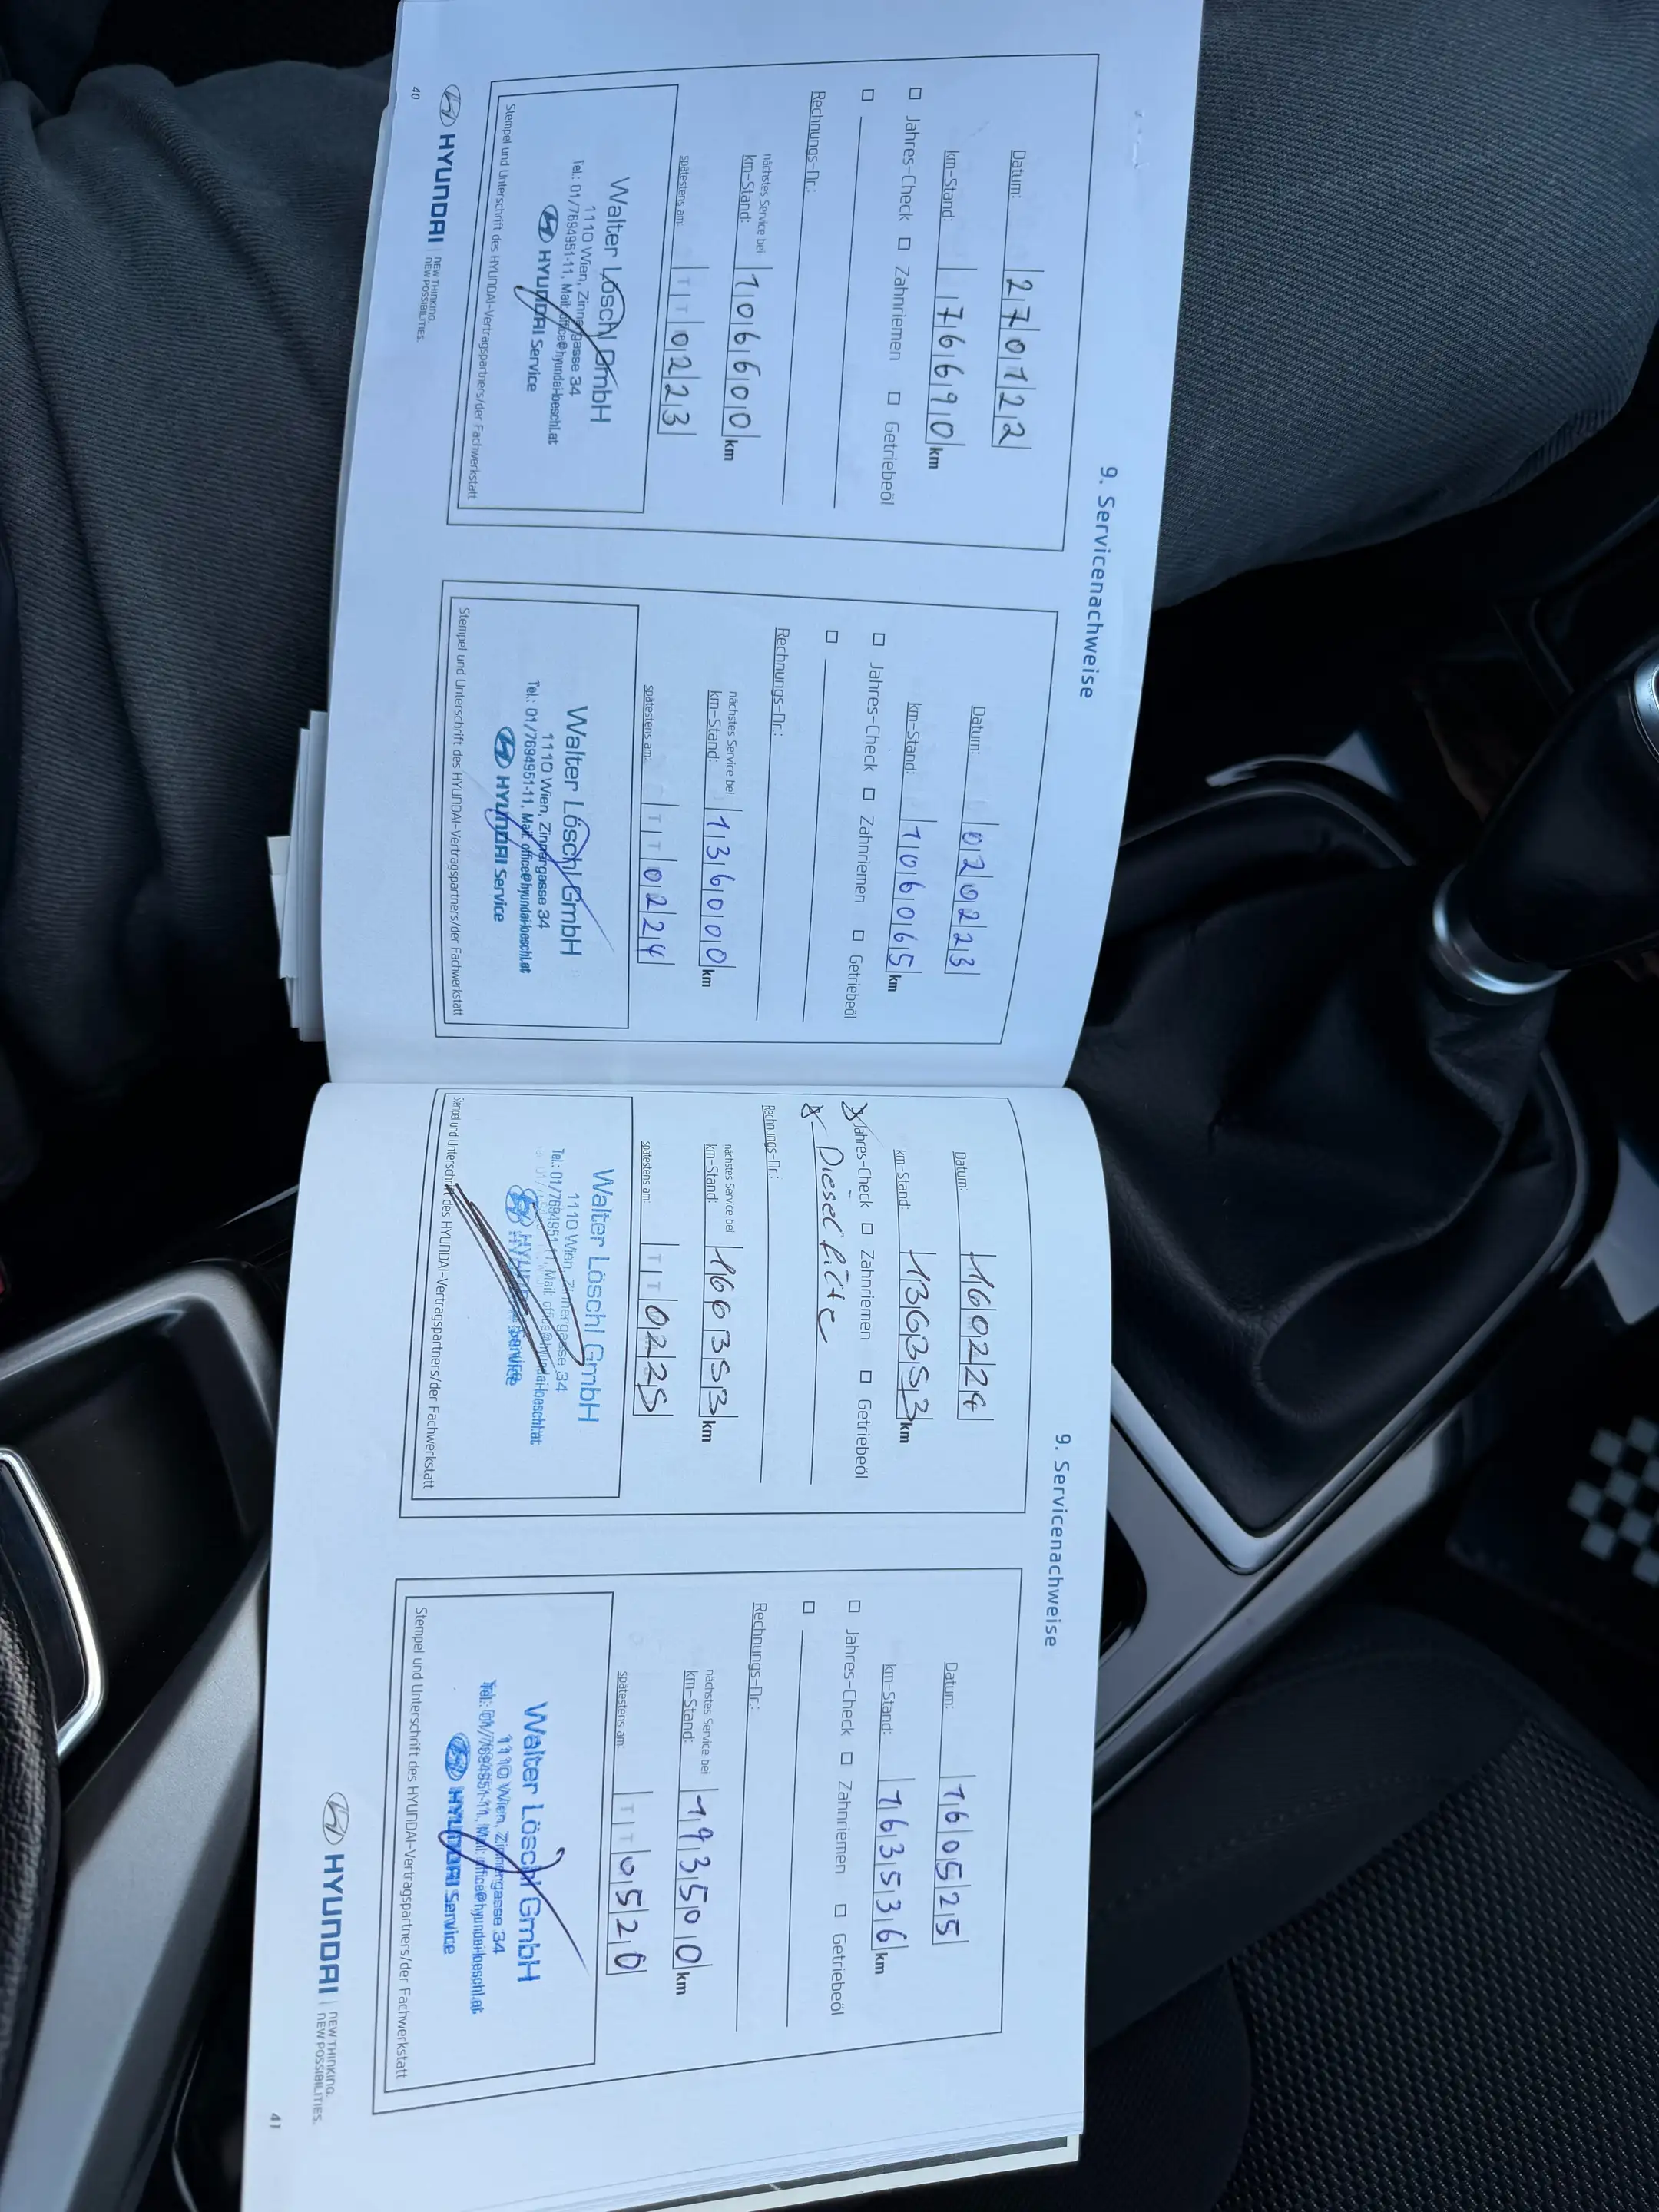 9. Servicenachweise
Datum: 270122
km-Stand: 76690 km
☐ Jahres-Check ☐ Zahnriemen ☐ Getriebeöl
☐
Rechnungs-Nr.:
nächstes Service bei
km-Stand: 106600 km
spätestens am: TT0223
Walter Löschl GmbH
1110 Wien, Zinnergasse 34
Tel.: 01/7694951-11, Mail: office@hyundai-loeschl.at
HYUNDAI Service
Stempel und Unterschrift des HYUNDAI-Vertragspartners/der Fachwerkstatt
Datum: 020223
km-Stand: 106065 km
☐ Jahres-Check ☐ Zahnriemen ☐ Getriebeöl
☐
Rechnungs-Nr.:
nächstes Service bei
km-Stand: 136000 km
spätestens am: TT0224
Walter Löschl GmbH
1110 Wien, Zinnergasse 34
Tel.: 01/7694951-11, Mail: office@hyundai-loeschl.at
HYUNDAI Service
Stempel und Unterschrift des HYUNDAI-Vertragspartners/der Fachwerkstatt
40
HYUNDAI | NEW THINKING.
NEW POSSIBILITIES.
9. Servicenachweise
Datum: 160224
km-Stand: 136353 km
☒ Jahres-Check ☐ Zahnriemen ☐ Getriebeöl
☒ Diesel filte
Rechnungs-Nr.:
nächstes Service bei
km-Stand: 166353 km
spätestens am: TT0225
Walter Löschl GmbH
1110 Wien, Zinnergasse 34
Tel.: 01/7694951-11, Mail: office@hyundai-loeschl.at
HYUNDAI Service
Stempel und Unterschrift des HYUNDAI-Vertragspartners/der Fachwerkstatt
Datum: 160525
km-Stand: 163536 km
☐ Jahres-Check ☐ Zahnriemen ☐ Getriebeöl
☐
Rechnungs-Nr.:
nächstes Service bei
km-Stand: 193500 km
spätestens am: TT0526
Walter Löschl GmbH
1110 Wien, Zinnergasse 34
Tel.: 01/7694951-11, Mail: office@hyundai-loeschl.at
HYUNDAI Service
Stempel und Unterschrift des HYUNDAI-Vertragspartners/der Fachwerkstatt
HYUNDAI | NEW THINKING.
NEW POSSIBILITIES.
41